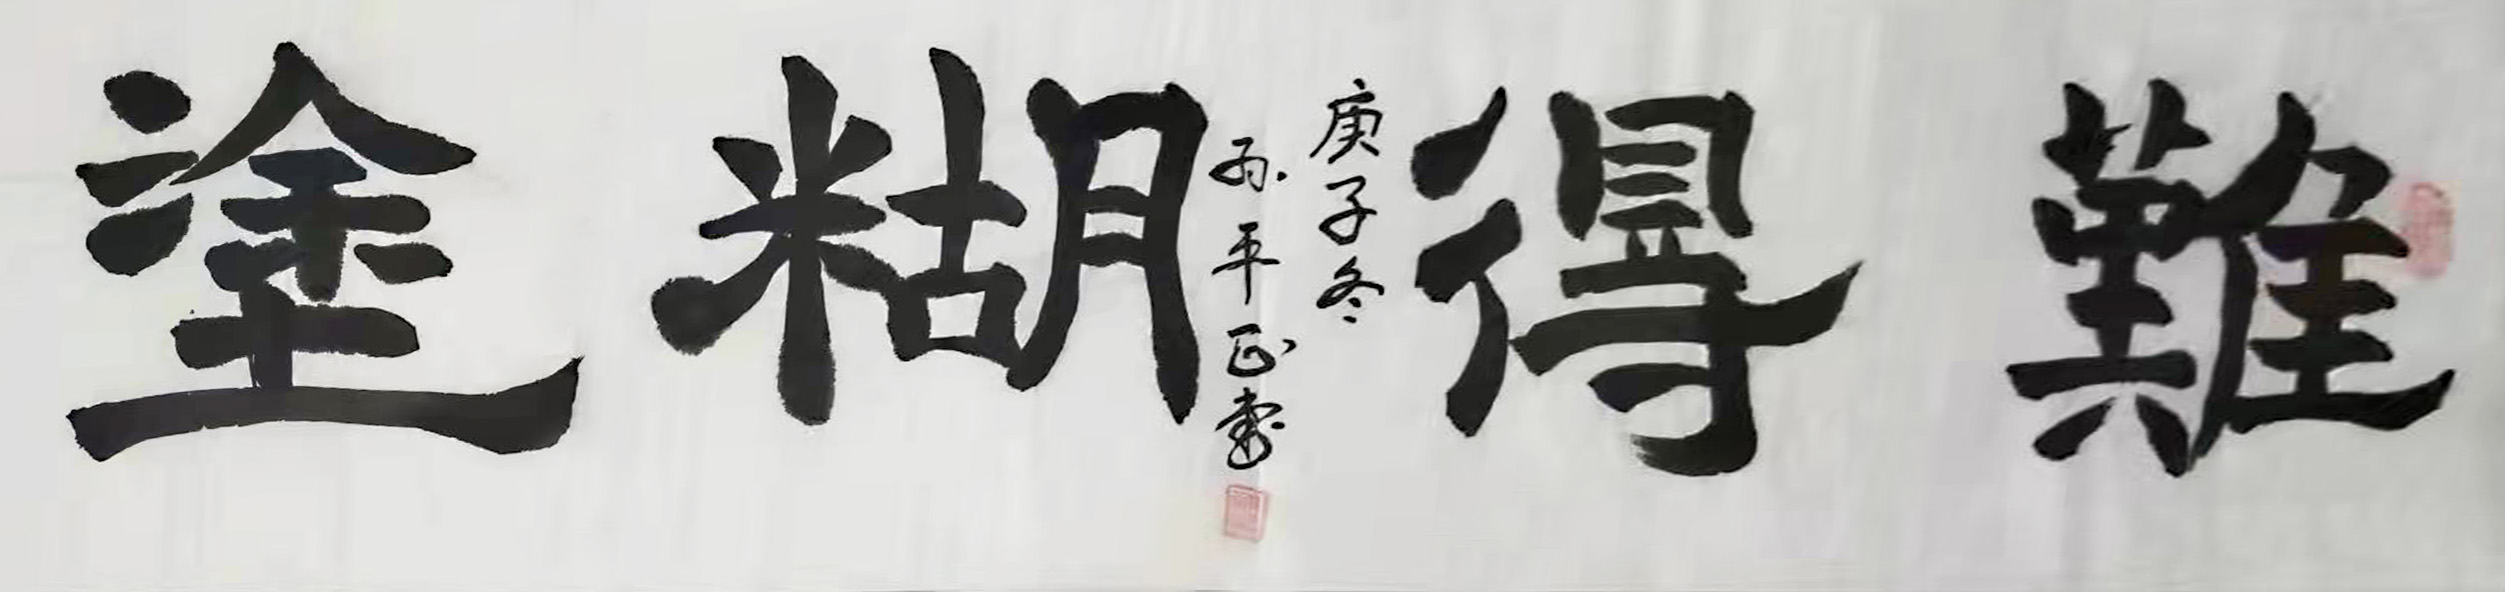 難得糊塗
庚子冬
孙平正書